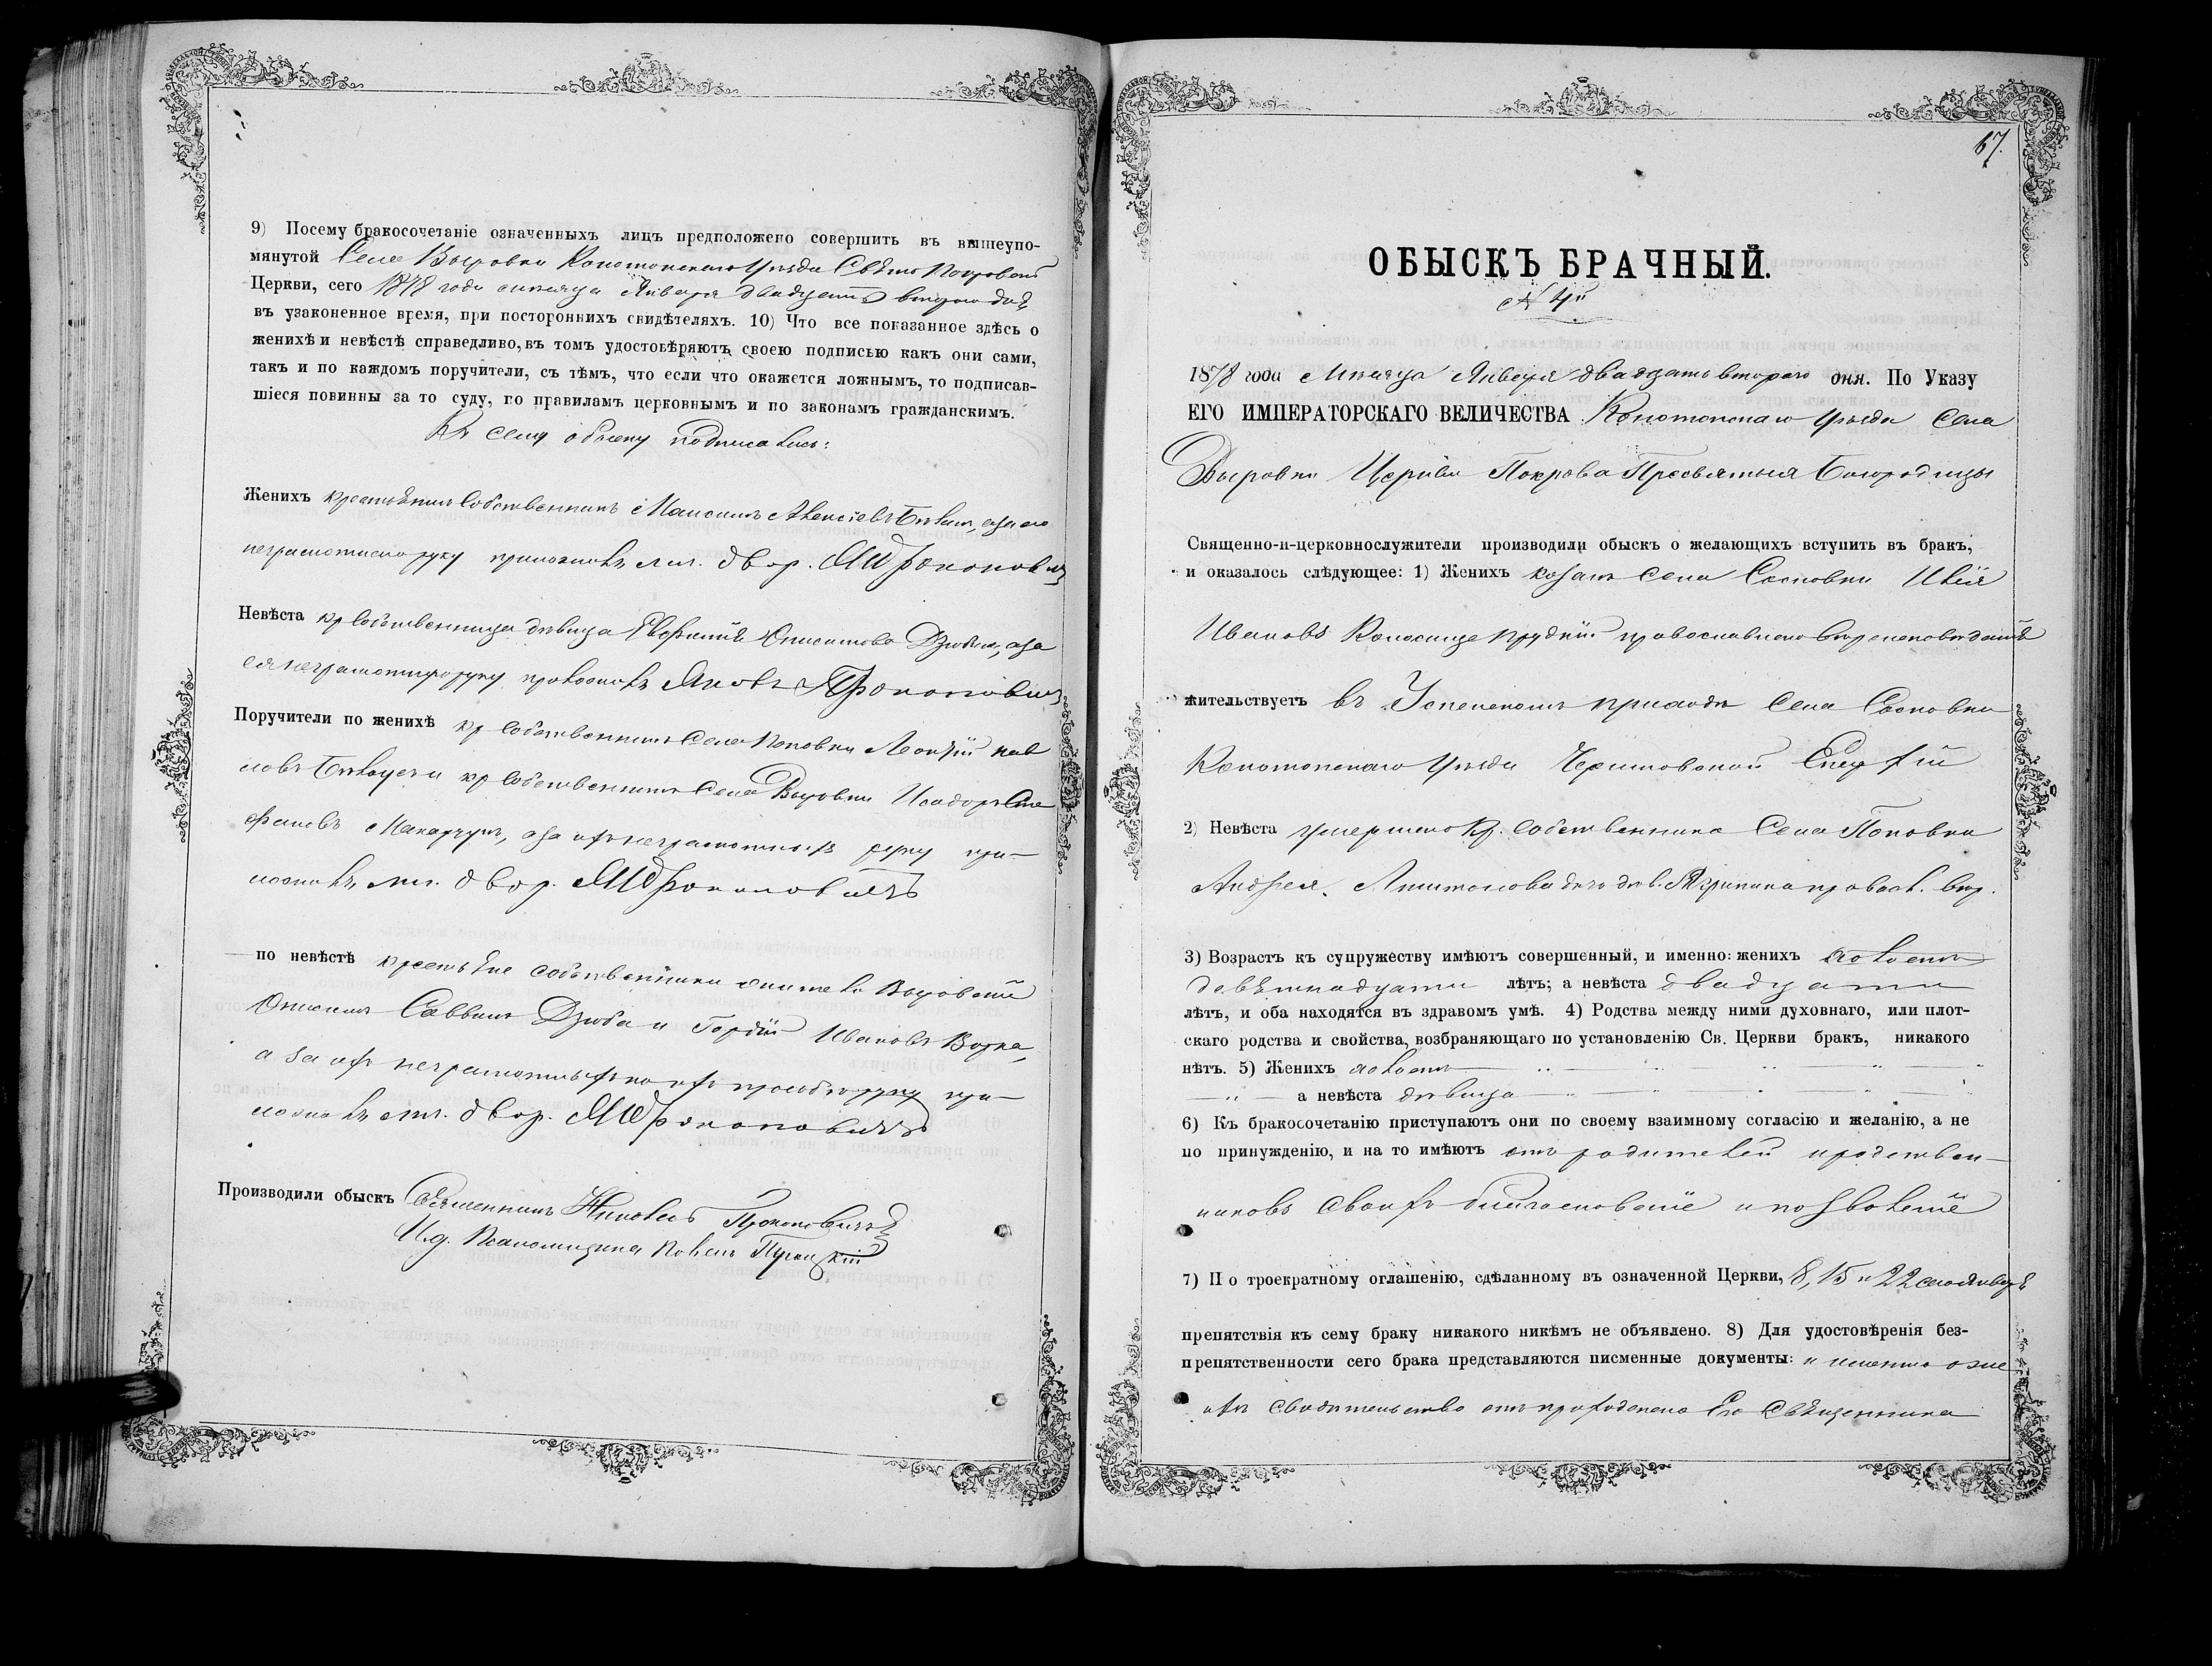 9) Посему бракосочетаніе означенныхъ лицъ предположено совершить въ вышеупо-
мянутой Села Выровки Конотопскаго Уѣзда Свято Покровской
Церкви, сего 1878 года мѣсяца Января двадцать втораго дня
въ узаконенное время, при постороннихъ свидѣтеляхъ. 10) Что все показанное здѣсь о
женихѣ и невѣстѣ справедливо, въ томъ удостовѣряютъ своею подписью какъ они сами,
такъ и по каждомъ поручители, съ тѣмъ, что если что окажется ложнымъ, то подписав-
шіеся повинны за то суду, по правиламъ церковнымъ и по законамъ гражданскимъ.
Къ сему обыску подписались:
Женихъ крестьянинъ собственникъ Максимъ Алексіевъ, а за его
неграмотнаго руку приложилъ двор. Прокоповичъ
Невѣста кр. собственница дѣвица Евфимія Онисимова Дзюбина, а за
ея неграмотную руку приложилъ Яковъ Прокоповичъ
Поручители по женихѣ кр. собственникъ Села Поповки Леонтій Пав
ловъ и кр. собственникъ Села Выровки Исидоръ Сте
фановъ Макарчукъ, а за ихъ неграмотныхъ руку при-
ложилъ двор. Прокоповичъ
по невѣстѣ крестьяне собственники жители Выровскіе
Онисимъ Саввинъ Дзюба и Гордій Ивановъ
а за ихъ неграмотныхъ по ихъ прозбѣ руку при-
ложилъ двор. Прокоповичъ
Производили обыскъ Священникъ Прокоповичъ
И.д. Псаломщика
67.
ОБЫСКЪ БРАЧНЫЙ.
№ 4й
1878 года Мѣсяца Января двадцать втораго дня. По Указу
ЕГО ИМПЕРАТОРСКАГО ВЕЛИЧЕСТВА Конотопскаго Уѣзда Села
Выровки Церкви Покрова Пресвятыя Богородицы
Священно-и-церковнослужители производили обыскъ о желающихъ вступить въ бракъ,
и оказалось слѣдующее: 1) Женихъ козакъ Села Сосновки Илія
Ивановъ православнаго вѣроисповѣданія
жительствуетъ въ Успенскомъ приходѣ Села Сосновки
Конотопскаго Уѣзда Черниговской Епархіи
2) Невѣста умершаго кр. собственника Села Поповки
Андрея дочь дѣв. Агрипина правосл. вѣр.
3) Возрастъ къ супружеству имѣютъ совершенный, и именно: женихъ холостъ
девятнадцати лѣтъ; а невѣста двадцати
лѣтъ, и оба находятся въ здравомъ умѣ. 4) Родства между ними духовнаго, или плот-
скаго родства и свойства, возбраняющаго по установленію Св. Церкви бракъ, никакого
нѣтъ. 5) Женихъ холостъ
а невѣста дѣвица
6) Къ бракосочетанію приступаютъ они по своему взаимному согласію и желанію, а не
по принужденію, и на то имѣютъ отъ родителей и родствен-
никовъ своихъ благословеніе и позволеніе
7) По троекратному оглашенію, сдѣланному въ означенной Церкви, 8, 15 и 22 сего Января
препятствія къ сему браку никакого никѣмъ не объявлено. 8) Для удостовѣренія без-
препятственности сего брака представляются писменные документы: и именно о же
нихѣ свидѣтельство отъ приходскаго Его Священника